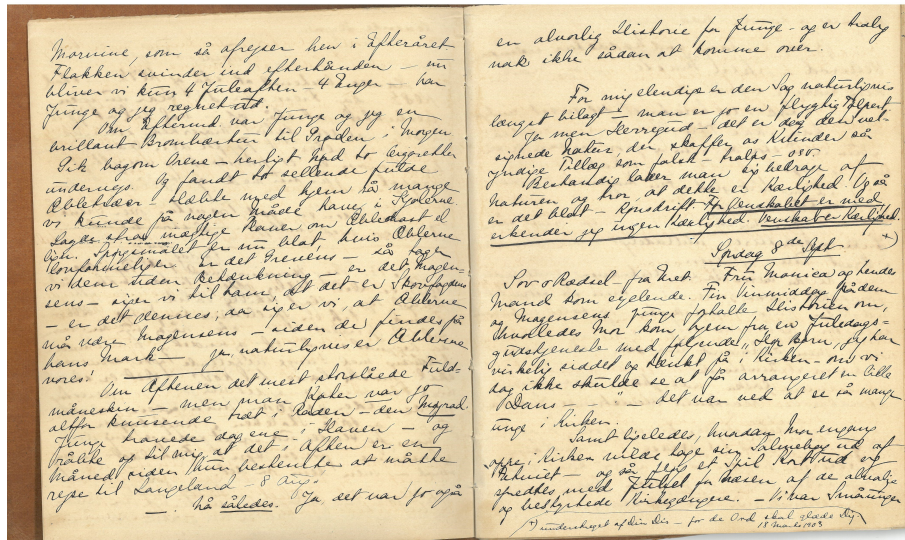 Mornine, som så afrejser hen i Efteråret
Flokken svinder ind efterhånden – nu
bliver vi kun 4 Juleaften – 4 Unger – har
Junge og jeg regnet ud.
Om Eftermd var Junge og jeg en
brillant Brombærtur til Prøden i Morgen
Pik bagom Urene – herligt Nød to
undervejs. Og fandt to sellende fulde
Æbletræer slæbte med hjem så mange
vi kunde på nogen måde have i Kjolerne
Lagde strax mægtige Planer om Æblekost il
lich. Spøgsmålet er nu blot, hvis Æblerne
er det Grevens – så tager
vi dem uden Betænkning – er det Mogen-
sens – siger vi til ham, at det er Skovfogdens
– er det dennes, da siger vi, at Æblerne
må være Mogensens – siden de findes på
hans Mark – ja naturligvis er Æblerne
vores!
Om Aftenen det mest storslåede Fuld-
månesken – men man Køher var jo
altfor knusende træt i Raden – den
Junge travede dagene i Haven – og
vrålte og til mig, at det Aften er en
måned siden hun bestemte at måtte
rejse til Langeland – 8 Aug.
– nå således. Ja det var jo også
en alvorlig Historie for Junge – og er trolig
nok ikke sådan at komme over.
For mig elendige er den Sag naturligvis
længst bilagt – man er jo en flygtig
Ja men Herregud – det er dog den vel-
signede Natur, der skaffer os Kvinder så
yndige Tillæg som falsk – troløs – osv.
Bestandig lader man sig bedrage af
Naturen og tror, at dette er Kærlighed. Og så
er det blot – Kønsdrift. Thi Venskabet er med
erkender jeg ingen Kærlighed. Venskab er Kærlighed.
*)
Søndag 8de Sept
Sov o Rædsel fra Kret. Fru Monica og hendes
Mand kom cyclende. Fin Vinmiddag på dem
og Mogensens Junge fortalte Historien om,
hvorledes Mor kom hjem fra en Juledags-
gudstjeneste med følgende, "Hør børn, jeg har
virkelig siddet og tænkt på i Kirken – om vi
dog ikke skulde se at få arrangeret en lille
Dans – – " – det var ved at se så mange
unge i Kirken.
Samt ligeledes, hvordan hun engang
oppe i Kirken vilde tage sin Salmebog ud af
– og så fløj et Spil Kort ud og
spredtes med for Næsen af de alvorlige
og bestyrtede Kirkegængere. – Vi var Småunger
*) understreget af Din Dis – for de Ord skal glæde Dig.
18 Marts 1903